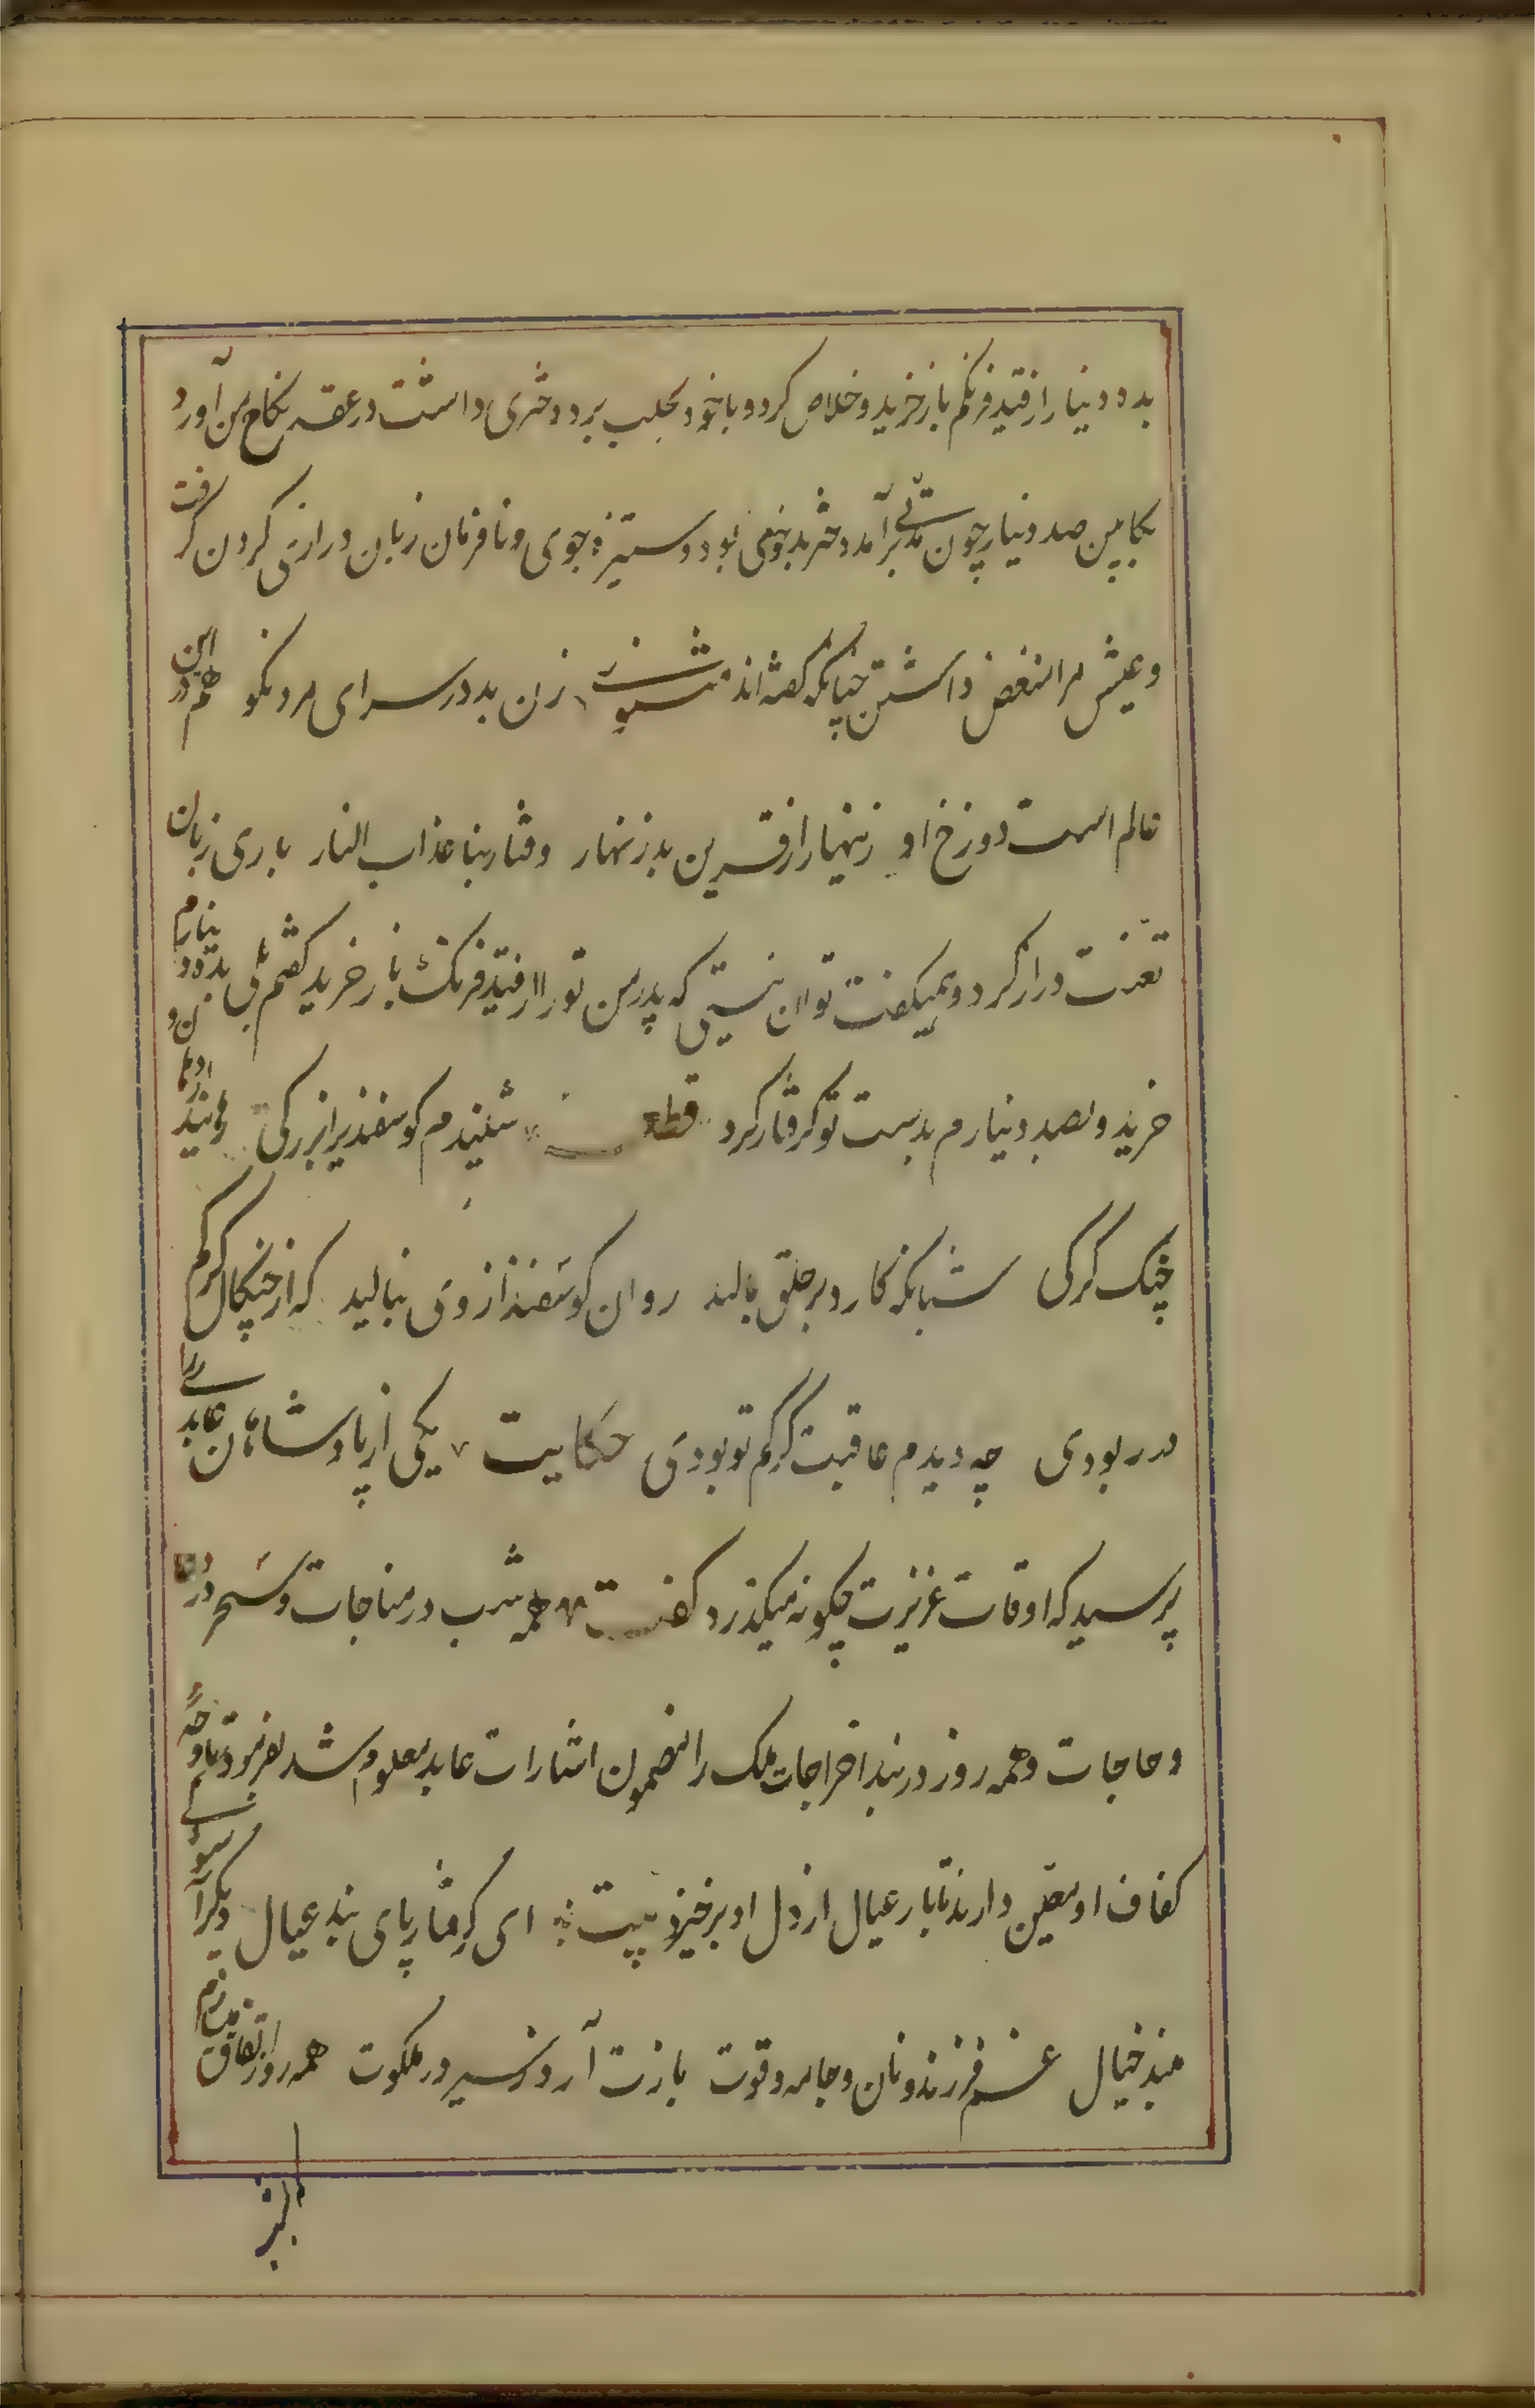 بده دینار از قید فرنگم باز خرید و خلاص کرد و با خود بحلب برد دختری داشت در عقد نکاح من آورد
بکابین صد دینار چون مدتی برآمد دختر بدخوی بود و ستیزه جوی و نافرمان زبان درازی کردن گرفت
و عیش مرا منغص داشتن چنانکه گفته اند مثنوی زن بد در سرای مرد نکو هم درین
عالم است دوزخ او زینهار از قرین بد زنهار وقنا ربنا عذاب النار باری زبان
تعنت دراز کرد و همیکفت تو آن نیستی که پدر من تو را از قید فرنک باز خرید کفتم بلی بده دینارم
خرید و بصد دینارم بدست تو کرفتار کرد قطعه شنیدم کوسفندیرا بزرکی رهانید از دهان و
چنک کرکی شبانکه کارد بر حلق بمالید روان کوسفند از وی بنالید که از چنکال کرکم
در ربودی چه دیدم عاقبت کرکم تو بودی حکایت یکی از پادشاهان عابدی را
پرسید که اوقات عزیزت چکونه میکذرد کفت همه شب در مناجات و سحر در دعا
و حاجات و همه روز در بند اخراجات ملک را مضمون اشارات عابد معلوم شد بفرمود تا وجه
کفاف او معین دارند تا بار عیال از دل او برخیزد بیت ای کرفتار پای بند عیال دیکر آسوده
مبند خیال غم فرزند و نان و جامه و قوت بازت آرد ز سیر در ملکوت همه روز اتفاق میسازم